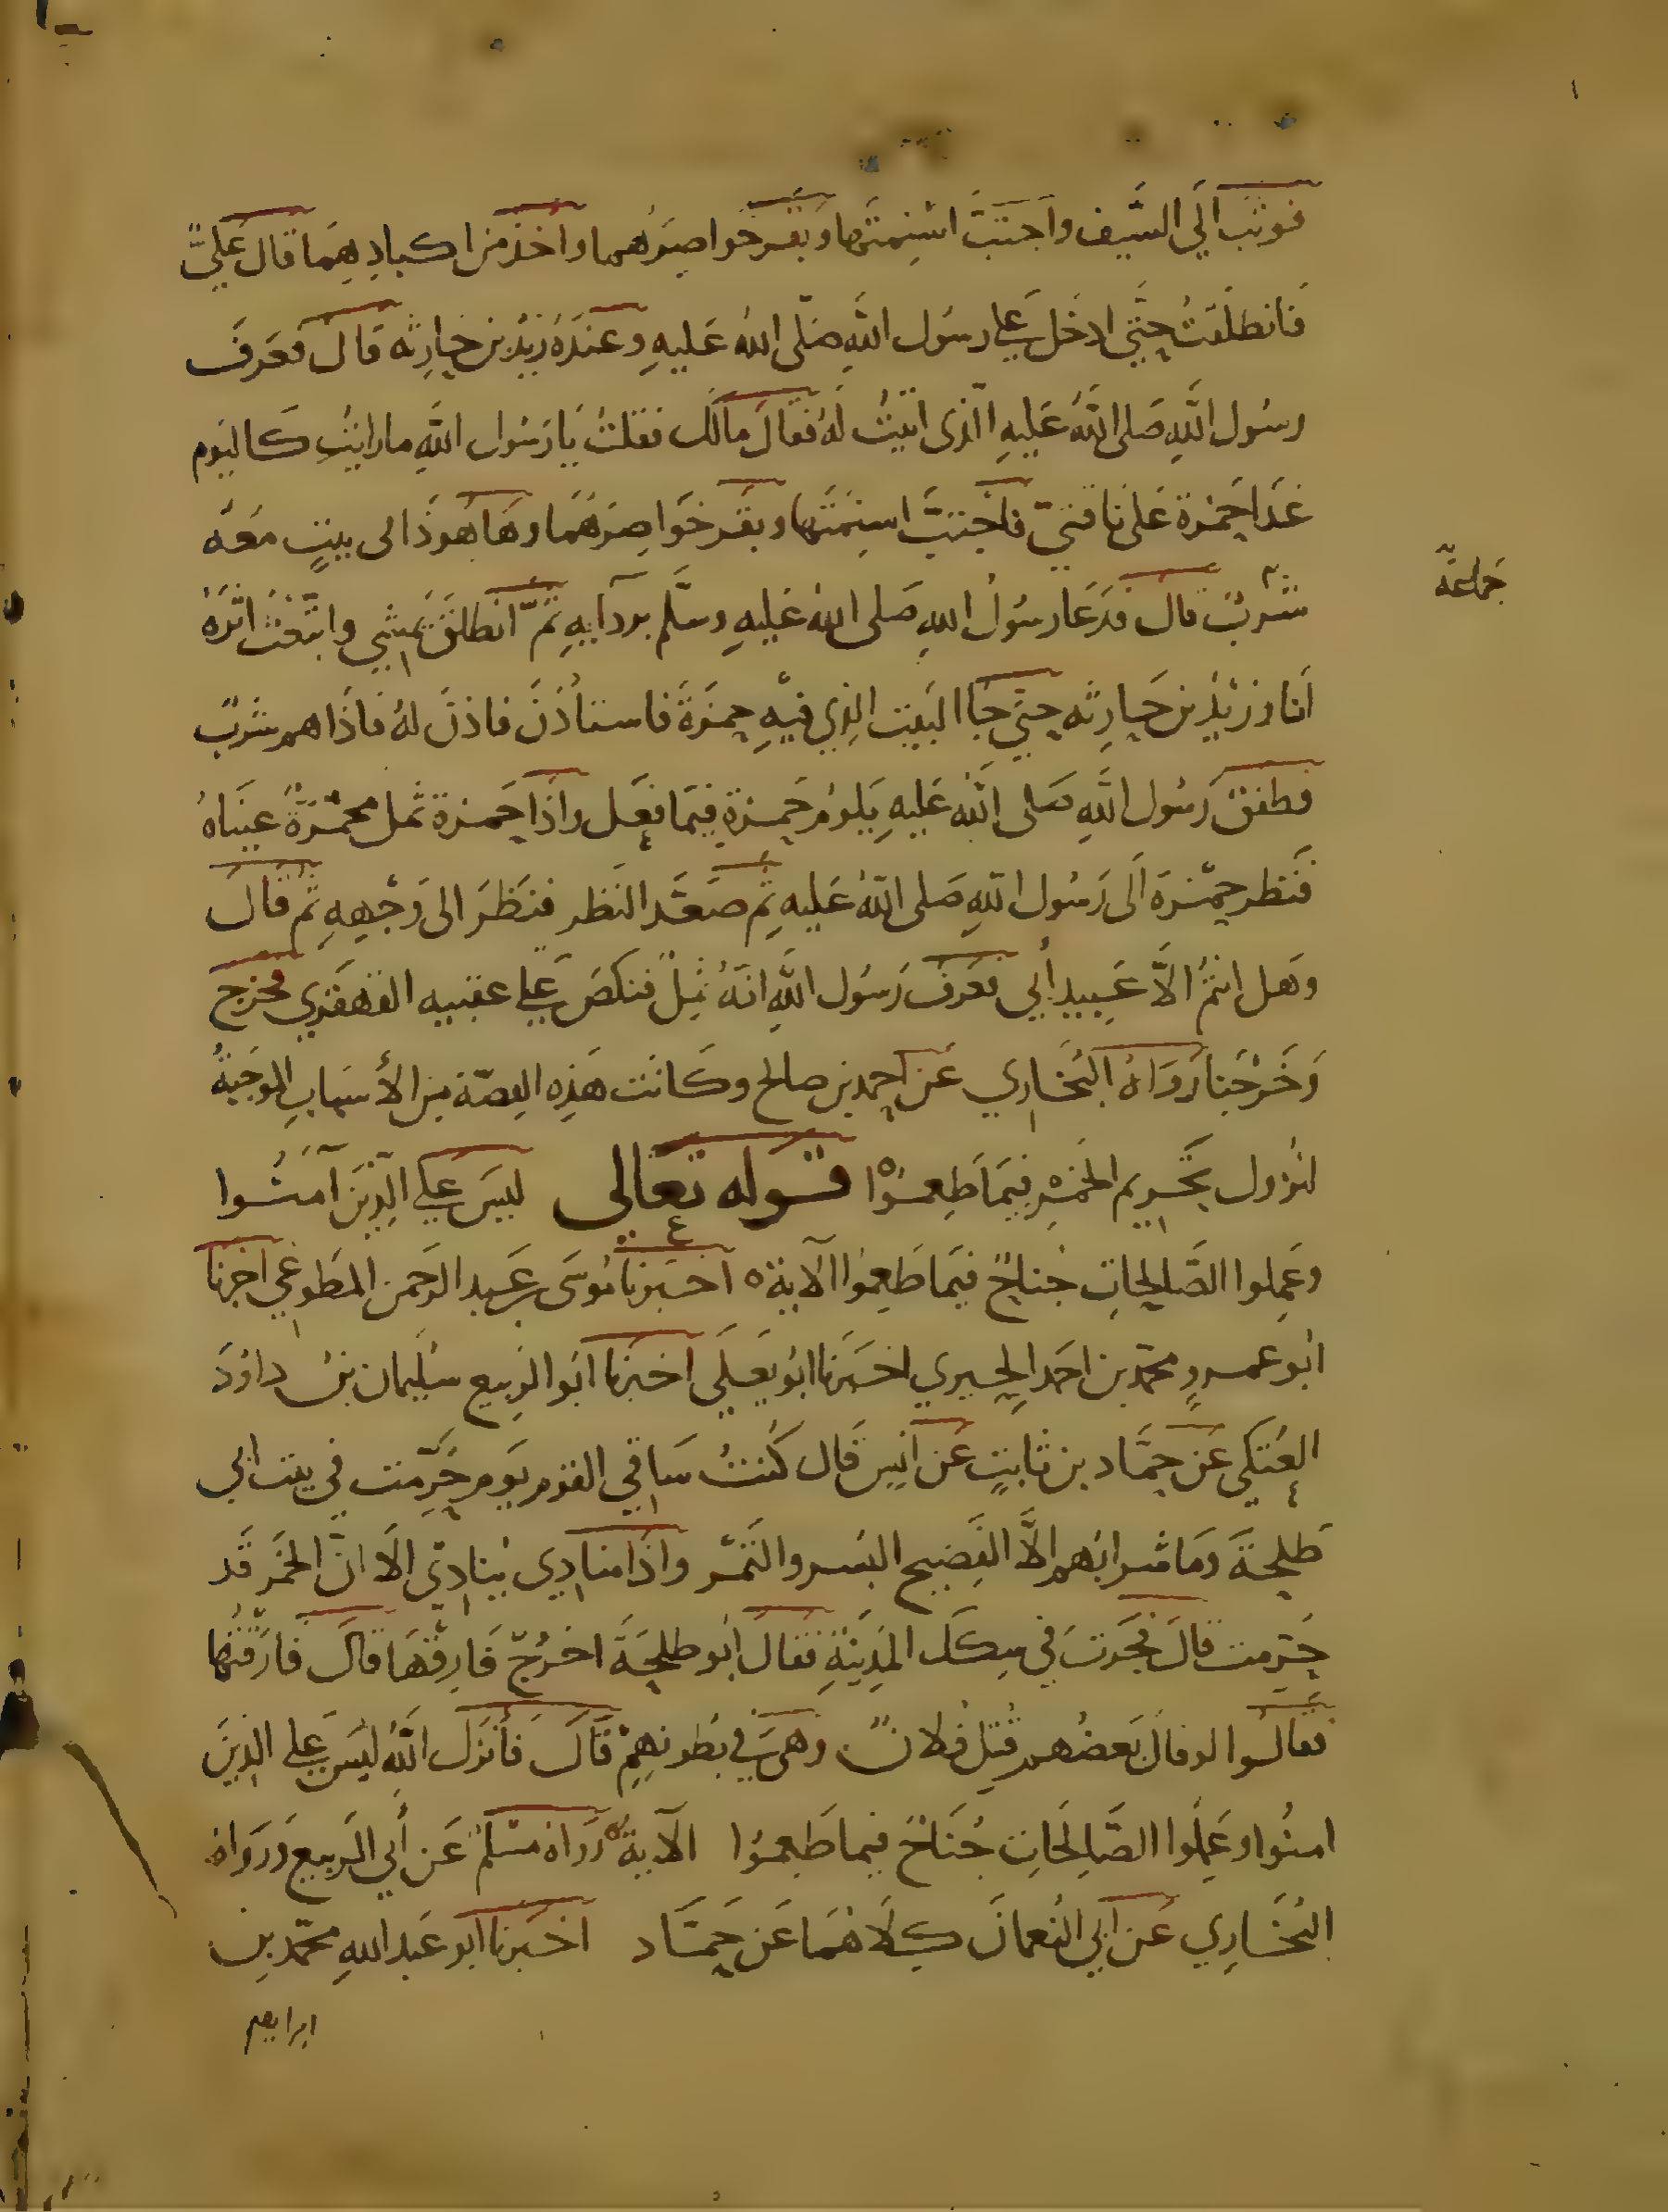 فوثب الي السَّيف واجتبَّ اسْنِمتَها وبَقَر خواصِرَهما واخذ من اكبادِهِمَا قال عَليٌّ
فَانطلقتُ حتَّي ادخَل علي رسُول اللهِ صَلّى اللهُ عَليهِ وعندَهُ زيْد بن حَارِثه قال فعَرفَ
رسُول اللهِ صَلى اللهُ عَليهِ الّذى اتيتُ لهُ فقالَ مالَك فقلتُ يَا رَسُول اللهِ ما رايْتُ كاليَوم
عَدَا حَمْزة عَلى نَاقتيّ فاجتبَّ اسنِمَتَها وبقَر خَوَاصِرَهُمَا وهَا هوَ ذَا فى بيْتٍ معَهُ
شَرْبٌ قال فدَعَا رسُولُ اللهِ صَلى اللهُ عَليهِ وسَلَّم بردَآيهِ ثمّ انطلقَ يَمشِي واتبَّعْتُ اثَرَهُ
جَماعَة
اَنا وزيْدُ بن حَارِثه حتي جَا البَيت الذِي فيْهِ حمزَةَ فاستَأذَنَ فاذنَ لهُ فاذَا هم شَرْبٌ
فطفقَ رَسُول اللهِ صَلى اللهُ عَليهِ يَلومُ حَمزة فِيمَا فعَل واذَا حَمزة ثَمل محمْرَّةٌ عينَاهُ
فنَظر حمْزة الَى رَسُول اللهِ صَلى اللهُ عَليهِ ثم صَعَّد النَظر فنَظَرَ الى وَجْهِهِ ثم قالَ
وهَل انتُمْ الاَّ عَبِيد أَبي فعَرفَ رَسُول اللهِ انَهُ ثمِلٌ فنكَصَ علي عقبيه القهقَرِي فخرج
وَخَرَجْنا رَوَاهُ البُخَارِي عَن احمد بن صالح وكَانَت هَذِه القِصّة من الأسبَابِ الموجَبةُ
لنزول تَحرِيم الخَمْرِ فِيمَا طَعِمُوْا قوله تعَالى ليسَ علي الّذِينَ آمنُوا
وعَمِلوا الصَّالِحَاتِ جُنَاحٌ فِيمَا طَعِمُوا الآية اخبَرنا مُوسَى بن عَبد الرحمن المطوعي اخبرنا
ابُو عمروٍ محمّد بن احمَد الحِيرِي اخبَرنا ابُو يَعلَي اخبرنا ابُو الرَبِيع سُليمان بنُ داوُدَ
العَتَكي عَن حمَّاد بن ثابتٍ عَن انَسٍ قَال كُنتُ سَاقي القوم يَوم حُرِّمت في بيت ابي
طَلحَةَ ومَا شرابُهم الاَّ الفَضِيح البُسر والتَمْر واذَا منادي يُنادِيْ الاَ انّ الخَمَر قَد
حُرّمت قالَ فجَرت في سِكَك المَدِينَةِ فقالَ ابُو طلحَةَ اخرُجّ فَارِقْهَا قالَ فارَقتُها
فقالُوا او قالَ بَعضُهم قُتِل فُلانٌ وهيَ في بُطونهِمْ قَالَ فَأنزَل اللهُ ليْسَ علي الّذِينَ
امنُوا وعَمِلُوا الصَّالِحَاتِ جُنَاحٌ فِيما طَعِمُوا الآية رَوَاهُ مسْلم عَن أبي الرَبيع ورَوَاهُ
البُخَارِي عَن ابي النُعمانَ كِلَاهُمَا عَن حَمَّاد اخبَرنا ابو عَبد اللهِ محمّد بن
ابراهيم